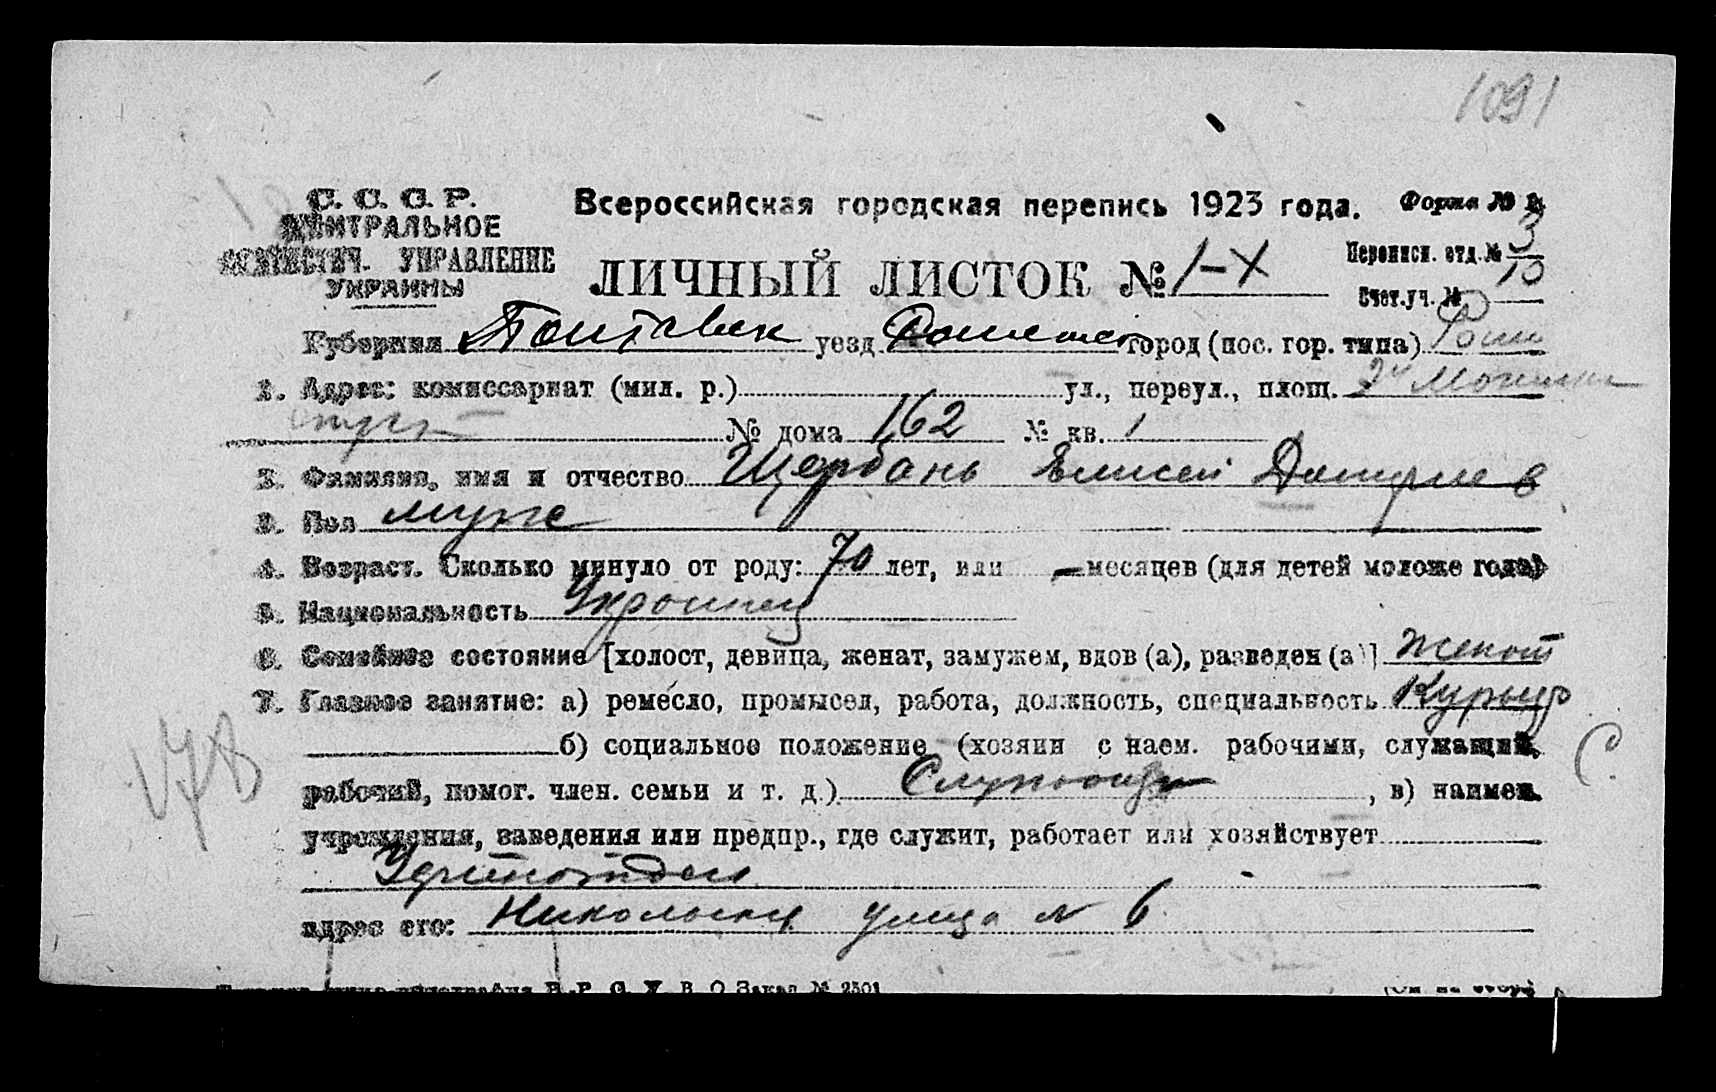 1091
С. С. С. Р. Всероссийская городская перепись 1923 года. Форма №
ЦЕНТРАЛЬНОЕ
СТАТИСТИЧ. УПРАВЛЕНИЕ
УКРАИНЫ
ЛИЧНЫЙ ЛИСТОК № 1-X
Переписн. отд. № 3
Счет. уч. № 10
Губерния Полтавск уезд город (пос. гор. типа)
1. Адрес: комиссариат (мил. р.) ул., переул., площ.
№ дома 162 № кв. 1
2. Фамилия, имя и отчество Щербань Елисей Дмитриев
3. Пол муж
4. Возраст. Сколько минуло от роду: 70 лет, или — месяцев (для детей моложе года)
5. Национальность Украинец
6. Семейное состояние [холост, девица, женат, замужем, вдов (а), разведен (а)] женат
7. Главное занятие: а) ремесло, промысел, работа, должность, специальность Курьер
б) социальное положение (хозяин с наем. рабочими, служащий,
рабочий, помог. член. семьи и т. д.) Служащий, в) наимен.
учреждения, заведения или предпр., где служит, работает или хозяйствует
адрес его: Никольская улица № 6
Заказ № 2501